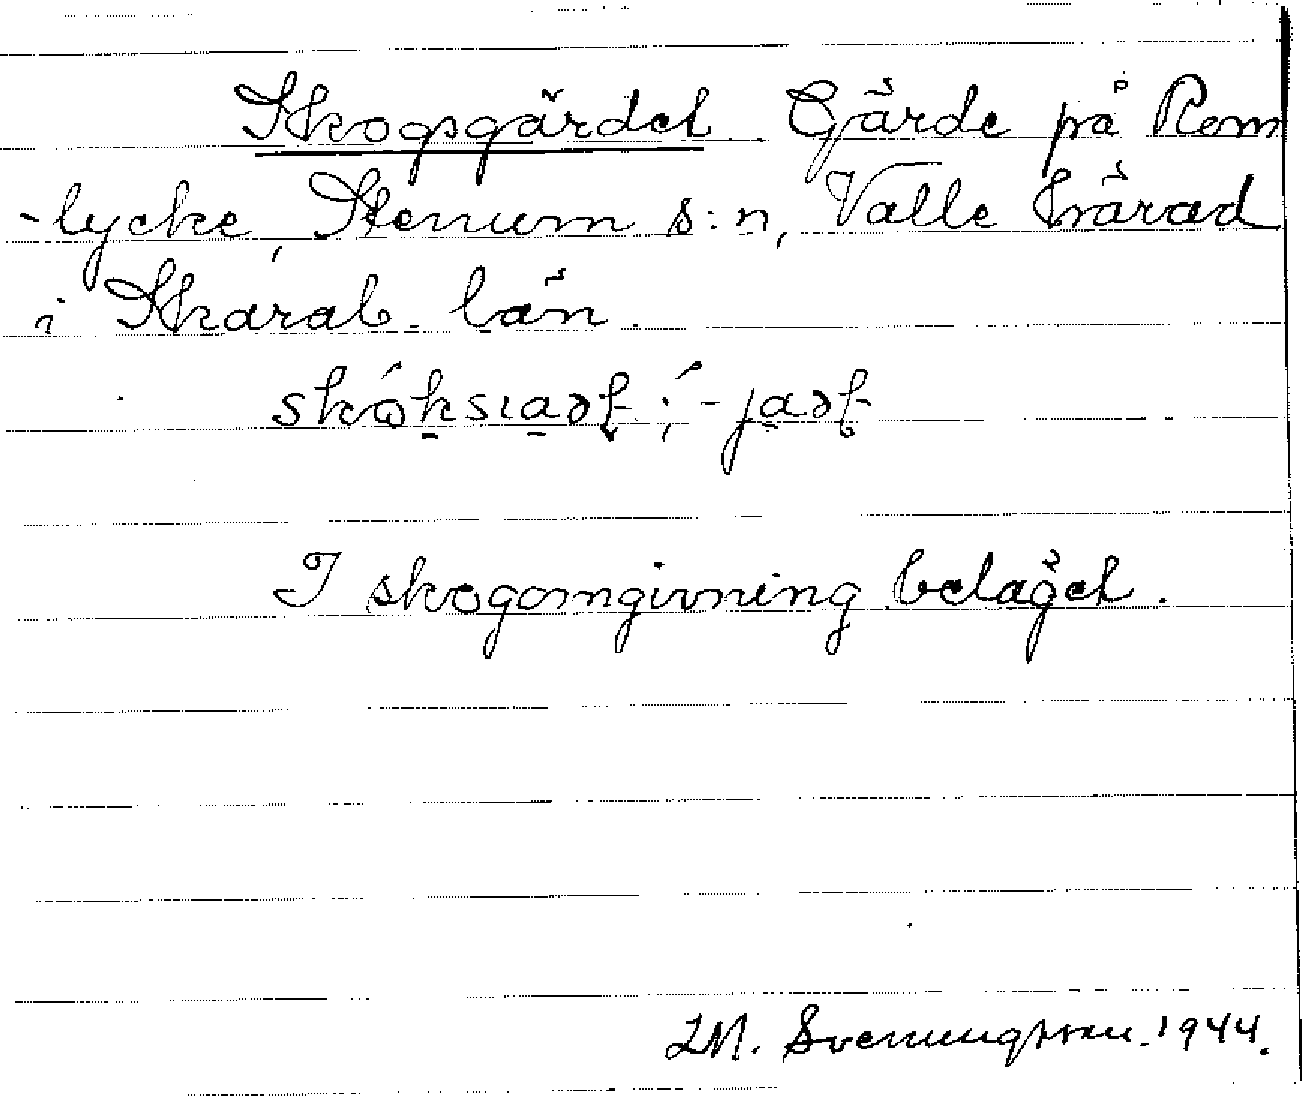 Skogsgärdet Gärde på Rem
-lycke, Stenum s:n, Valle härad
i Skarab. län.
I skogomgivning beläget.
Svenungsson. 1944.